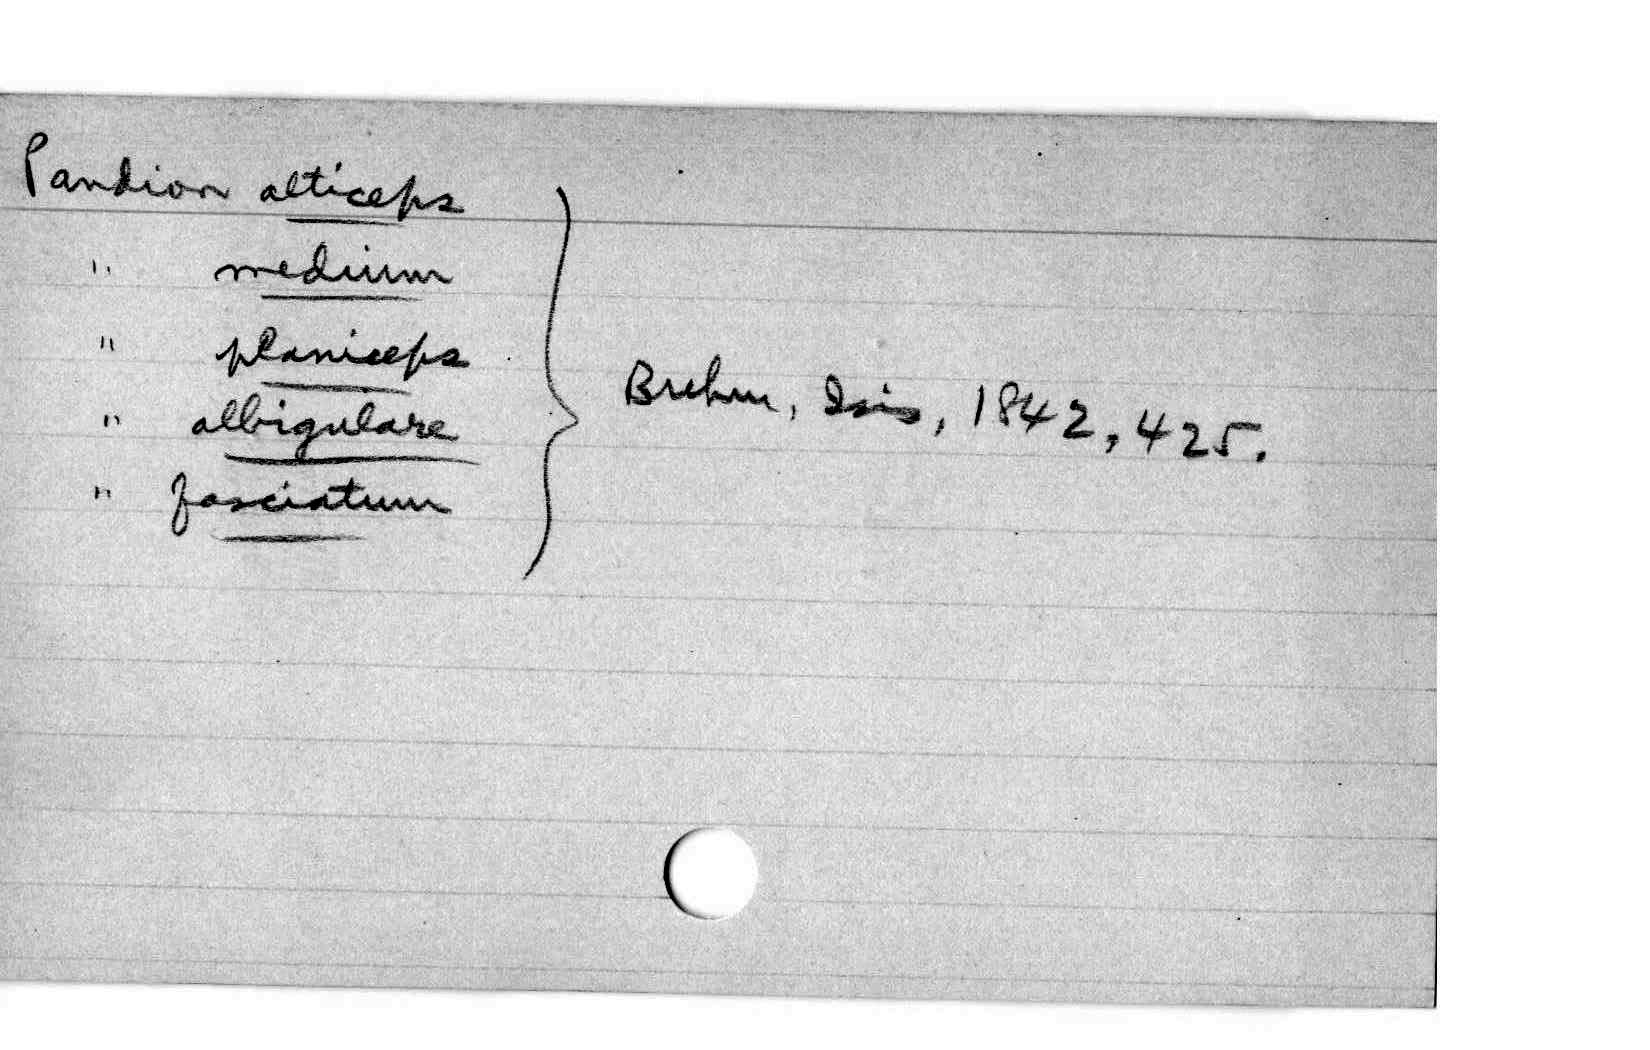 Pandion alticeps
" medium
" planiceps
" albigulare
" fasciatum
Brehm, Isis, 1842, 425.